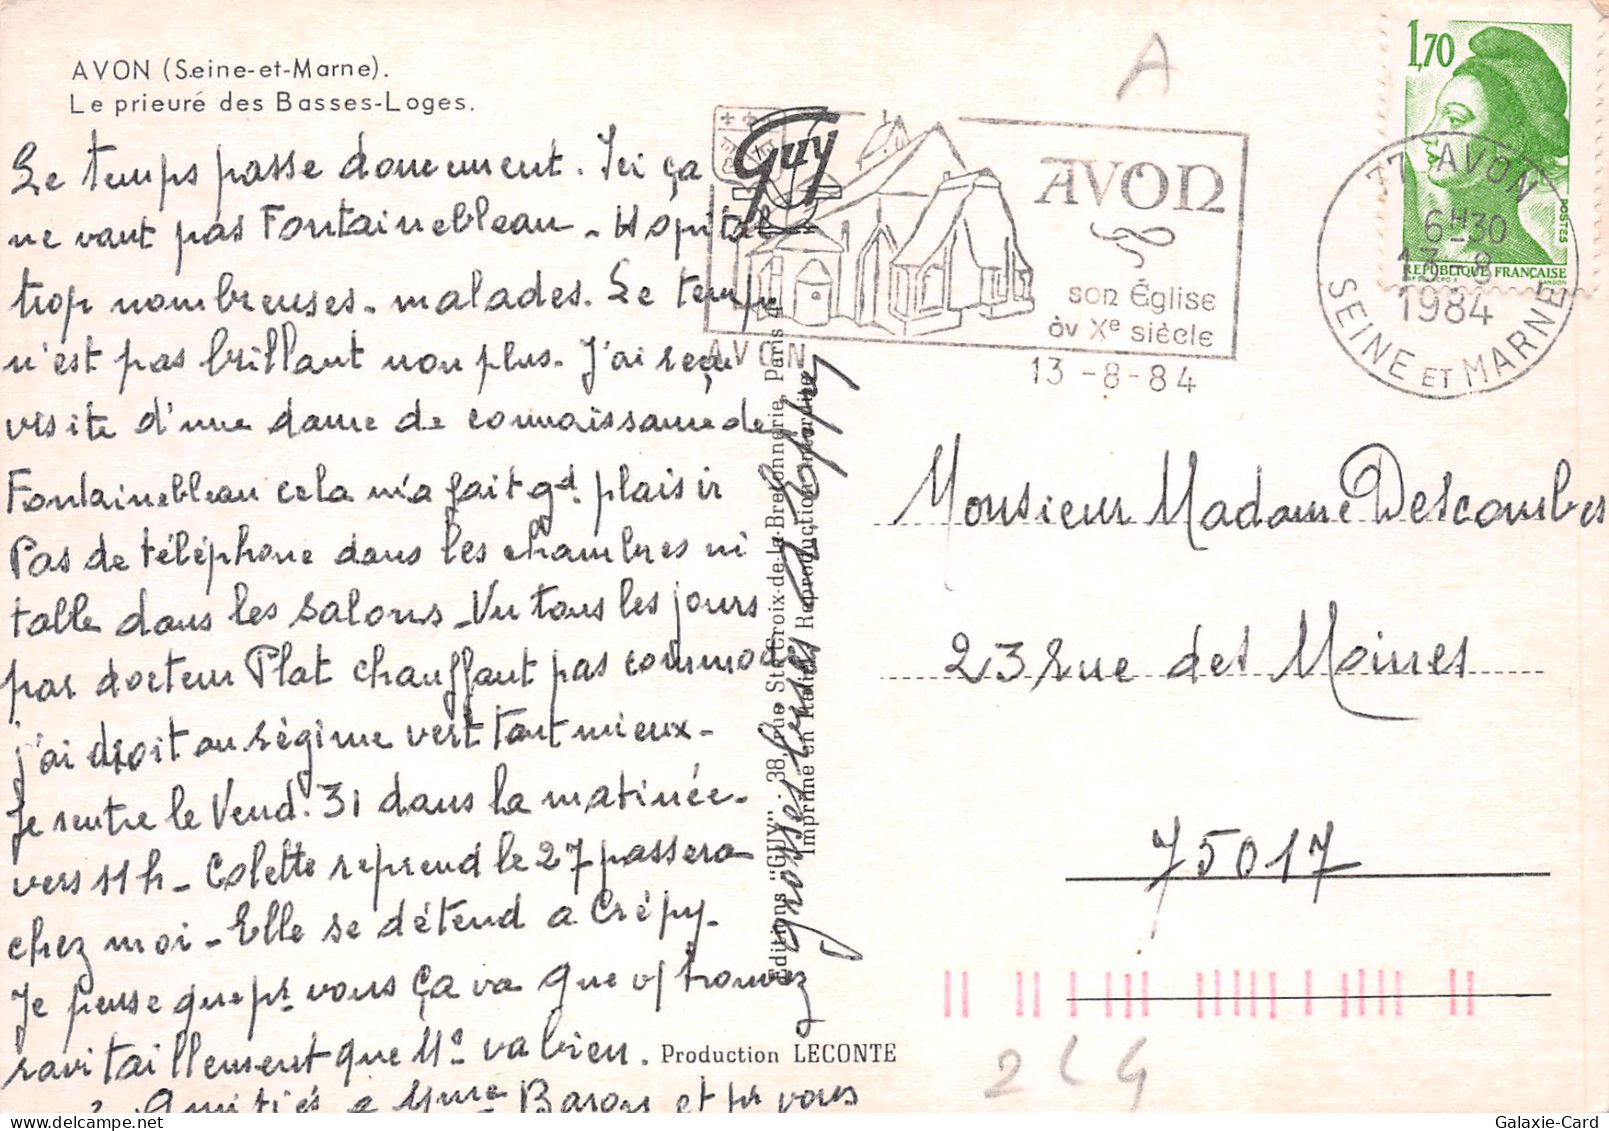 AVON (Seine-et-Marne).
Le prieuré des Basses-Loges.
Le temps passe doucement. Ici ça
ne vaut pas Fontainebleau - Hopital
trop nombreuses - malades. Le temps
n'est pas brillant non plus. J'ai reçu
visite d'une dame de connaissance de
Fontainebleau cela m'a fait gd. plaisir
Pas de téléphone dans les chambres ni
table dans les salons - Vu tous les jours
par docteur Plat chauffant pas commode
j'ai droit au régime vert tant mieux -
Je rentre le Vend. 31 dans la matinée -
vers 11h - Colette reprend le 27 passera
chez moi - Elle se détend a Crépy.
Je pense que pr. vous ça va que v/ trouvez
ravitaillement que Mo va bien.
Amitiés a Mme Baron et pr vous
grosses bises
Editions "GUY", 38, rue Ste-Croix-de-la-Bretonnerie, Paris
Imprimé en Italie Reproduction interdite
Production LECONTE
Guy
AVON
son Église
du Xe siècle
AVON
13 -8-84
A
1,70
POSTES
REPUBLIQUE FRANÇAISE
77 AVON
6H30
13-8
1984
SEINE ET MARNE
Monsieur Madame Descombes
23 rue des Moines
75017
2 L G
Galaxie-Card.com